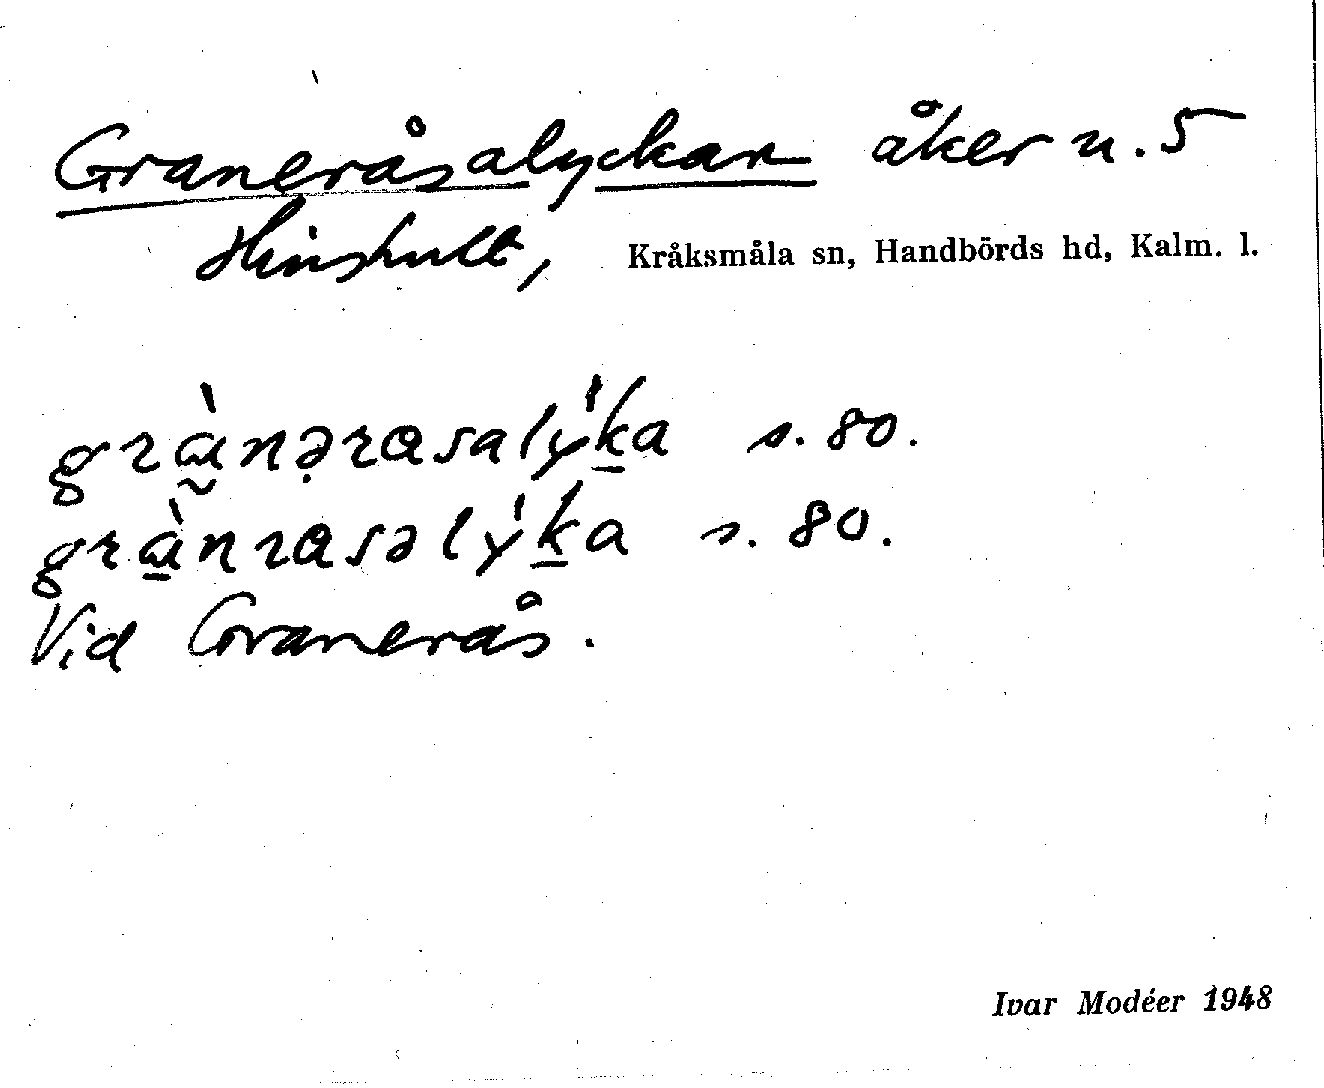 Graneråsalyckan åker u. 5
Hinshult, Kråksmåla sn, Handbörds hd, Kalm. l.
grὰ̰nə̣rɑsalý̇ḵa s. 80.
grὰ̱nrɑsəlý̇ḵa s. 80.
Vid Granerås.
Ivar Modéer 1948